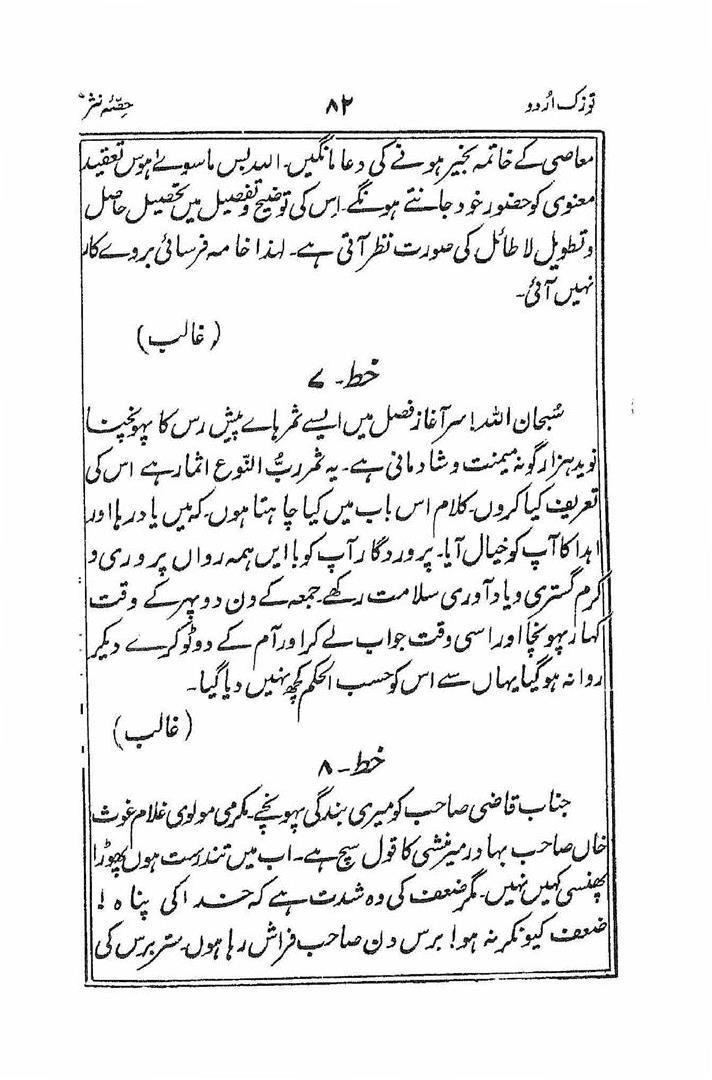 توزک اردو ۸۲ حصّۂ نثر
معاصی کے خاتمہ بخیر ہونے کی دعا مانگیں۔ اللہ بس ماسوےٰ ہوس تعقید
معنوی کو حضور خود جانتے ہونگے۔ اس کی توضیح و تفصیل میں تحصیل حاصل
و تطویل لا طائل کی صورت نظر آتی ہے۔ لہذا خامہ فرسائی بروے کار
نہیں آئی۔
(غالب)
خط۔ ۷
سُبحان اللہ! سر آغاز فصل میں ایسے ثمر ہاے پیش رس کا پہونچنا
نوید ہزار گونہ میمنت و شادمانی ہے۔ یہ ثمر ربُّ النّوع اثمار ہے اس کی
تعریف کیا کروں۔ کلام اس باب میں کیا چاہتا ہوں۔ کہ میں یاد رہا اور
اہدا کا آپ کو خیال آیا۔ پروردگار آپ کو با ایں ہمہ رواں پروری و
کرم گستری و یاد آوری سلامت رکھے۔ جمعہ کے دن دوپہر کے وقت
کہار پہونچا اور اسی وقت جواب لے کر اور آم کے دو ٹوکرے دیکر
روانہ ہو گیا یہاں سے اس کو حسب الحکم کچھ نہیں دیا گیا۔
(غالب)
خط۔ ۸
جناب قاضی صاحب کو میری بندگی پہونچے۔ مکرمی مولوی غلام غوث
خاں صاحب بہادر میر منشی کا قول سچ ہے۔ اب میں تندرست ہوں پھوڑا
پھنسی کہیں نہیں۔ مگر ضعف کی وہ شدت ہے کہ خدا کی پناہ!
ضعف کیونکر نہ ہو! برس دن صاحب فراش رہا ہوں۔ ستر برس کی